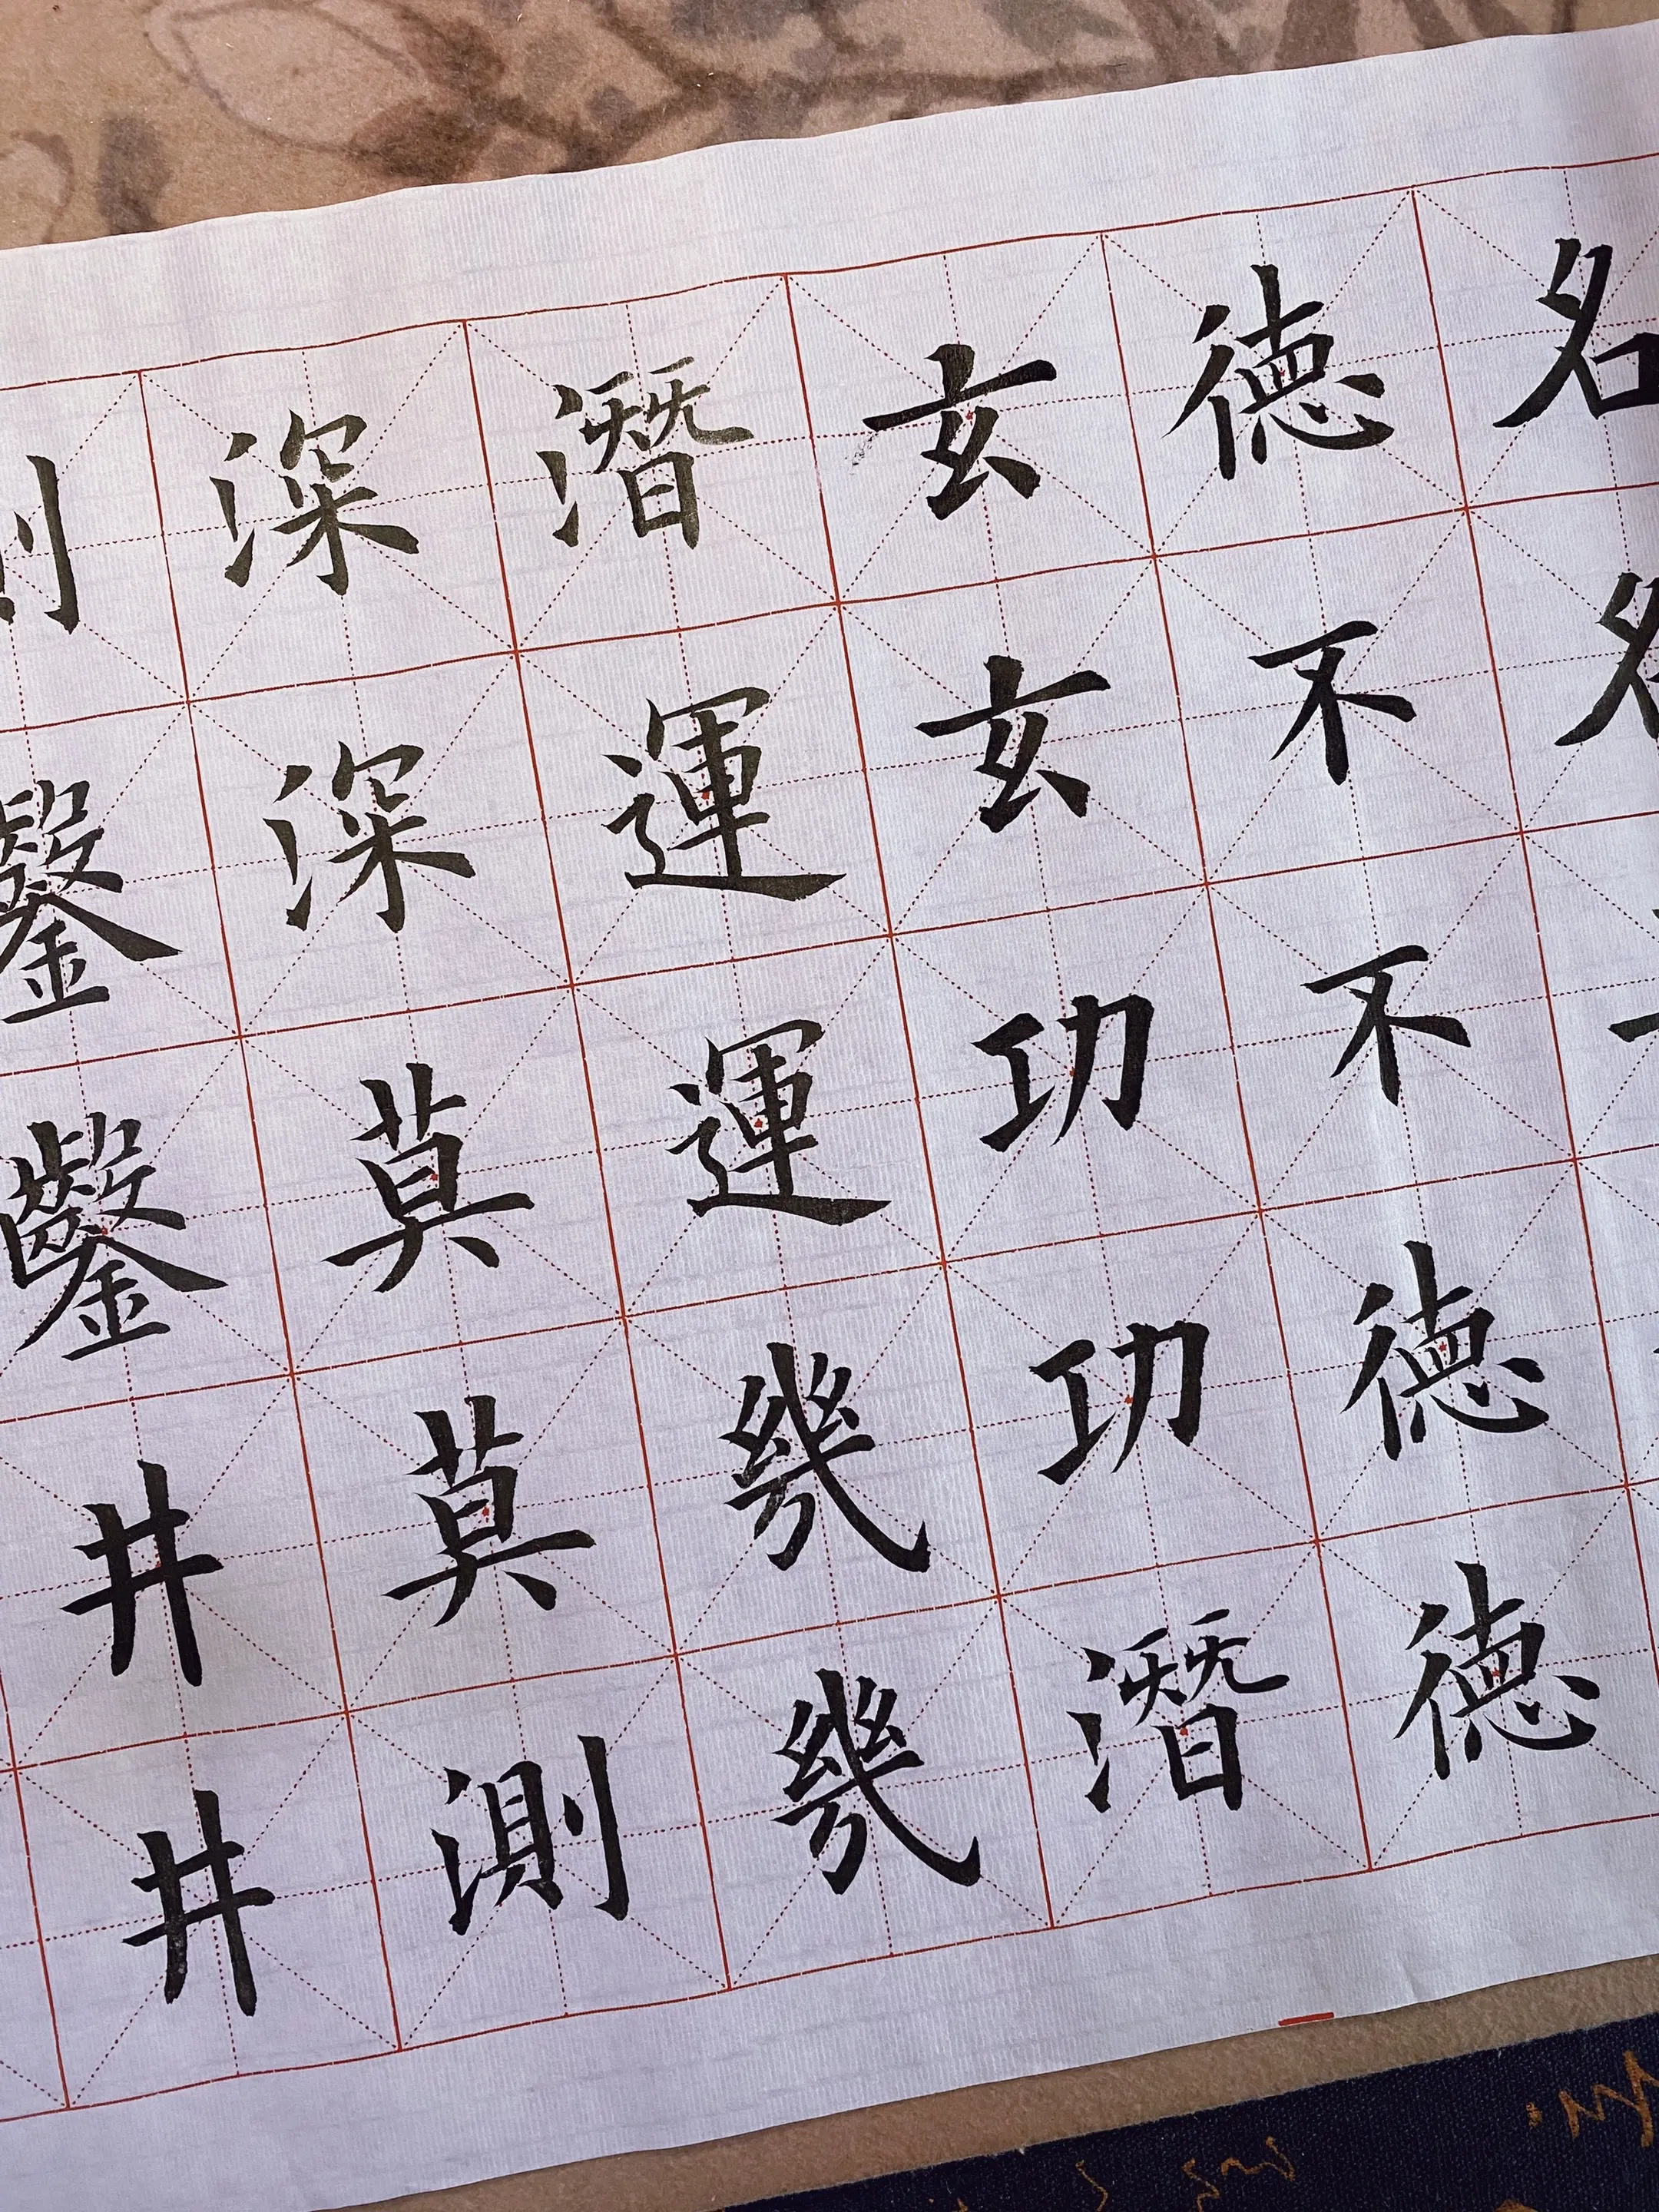 名名
德不不德德
玄玄功功潛
潛運運幾幾
深深莫莫測
測鑿鑿井井